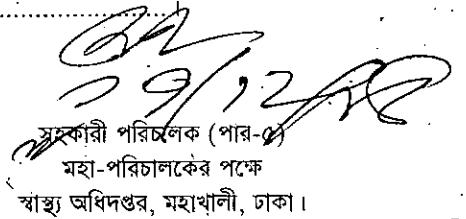 সহকারী পরিচালক (পার-৫)
মহা-পরিচালকের পক্ষে
স্বাস্থ্য অধিদপ্তর, মহাখালী, ঢাকা।